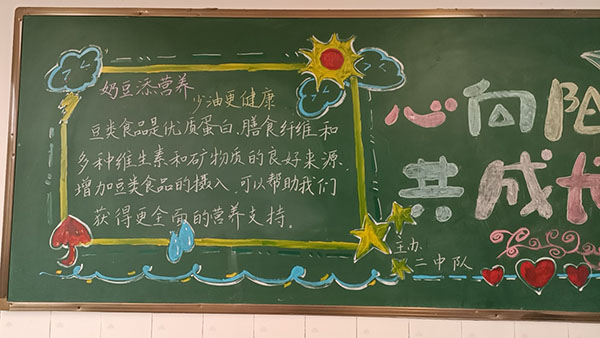 奶豆添营养
少油更健康
豆类食品是优质蛋白、膳食纤维和
多种维生素和矿物质的良好来源,
增加豆类食品的摄入,可以帮助我们
获得更全面的营养支持。
心向阳
共成长
主办
二中队